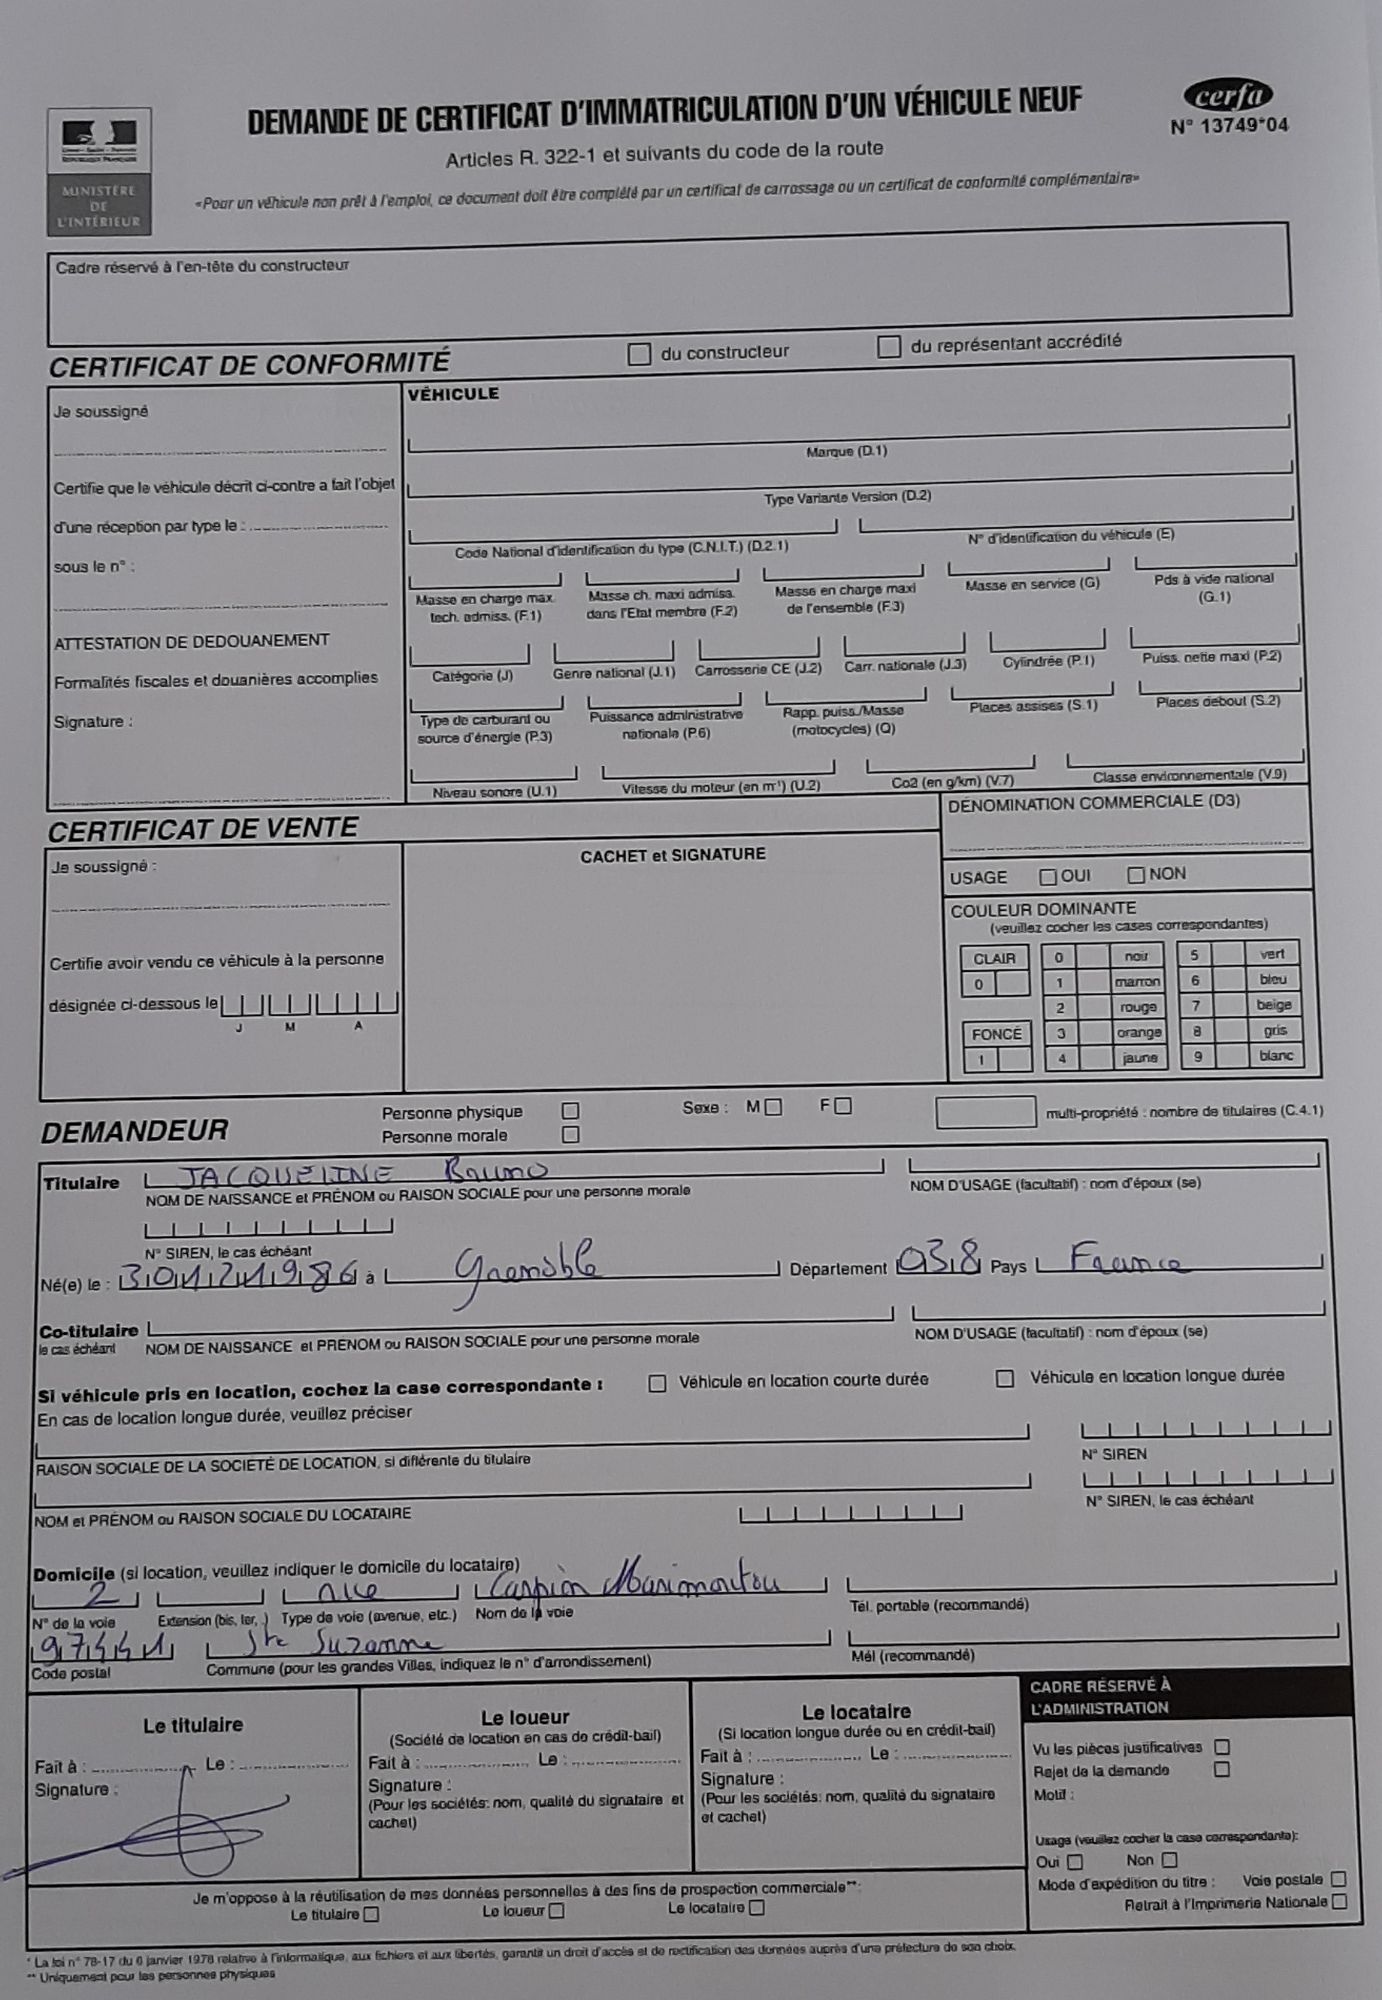 DEMANDE DE CERTIFICAT D'IMMATRICULATION D'UN VÉHICULE NEUF
cerfa
N° 13749*04
Articles R. 322-1 et suivants du code de la route
RÉPUBLIQUE FRANÇAISE
MINISTÈRE
DE
L'INTÉRIEUR
«Pour un véhicule non prêt à l'emploi, ce document doit être complété par un certificat de carrossage ou un certificat de conformité complémentaire»
Cadre réservé à l'en-tête du constructeur
CERTIFICAT DE CONFORMITÉ
du constructeur
du représentant accrédité
Je soussigné
Certifie que le véhicule décrit ci-contre a fait l'objet
d'une réception par type le :
sous le n° :
ATTESTATION DE DEDOUANEMENT
Formalités fiscales et douanières accomplies
Signature :
VÉHICULE
Marque (D.1)
Type Variante Version (D.2)
Code National d'identification du type (C.N.I.T.) (D.2.1)
N° d'identification du véhicule (E)
Masse en charge max. tech. admiss. (F.1)
Masse ch. maxi admiss. dans l'Etat membre (F.2)
Masse en charge maxi de l'ensemble (F.3)
Masse en service (G)
Pds à vide national (G.1)
Catégorie (J)
Genre national (J.1)
Carrosserie CE (J.2)
Carr. nationale (J.3)
Cylindrée (P.1)
Puiss. nette maxi (P.2)
Type de carburant ou source d'énergie (P.3)
Puissance administrative nationale (P.6)
Rapp. puiss./Masse (motocycles) (Q)
Places assises (S.1)
Places debout (S.2)
Niveau sonore (U.1)
Vitesse du moteur (en m⁻¹) (U.2)
Co2 (en g/km) (V.7)
Classe environnementale (V.9)
CERTIFICAT DE VENTE
Je soussigné :
Certifie avoir vendu ce véhicule à la personne
désignée ci-dessous le
J M A
CACHET et SIGNATURE
DÉNOMINATION COMMERCIALE (D3)
USAGE OUI NON
COULEUR DOMINANTE
(veuillez cocher les cases correspondantes)
CLAIR 0 noir 5 vert
0 1 marron 6 bleu
2 rouge 7 beige
FONCÉ 3 orange 8 gris
1 4 jaune 9 blanc
DEMANDEUR
Personne physique
Personne morale
Sexe : M F
multi-propriété : nombre de titulaires (C.4.1)
Titulaire JACQUELINE Bruno
NOM DE NAISSANCE et PRÉNOM ou RAISON SOCIALE pour une personne morale
NOM D'USAGE (facultatif) : nom d'époux (se)
N° SIREN, le cas échéant
Né(e) le : 30121986 à Grenoble Département 038 Pays France
Co-titulaire
le cas échéant
NOM DE NAISSANCE et PRENOM ou RAISON SOCIALE pour une personne morale
NOM D'USAGE (facultatif) : nom d'époux (se)
Si véhicule pris en location, cochez la case correspondante : Véhicule en location courte durée Véhicule en location longue durée
En cas de location longue durée, veuillez préciser
RAISON SOCIALE DE LA SOCIÉTÉ DE LOCATION, si différente du titulaire
N° SIREN
NOM et PRÉNOM ou RAISON SOCIALE DU LOCATAIRE
N° SIREN, le cas échéant
Domicile (si location, veuillez indiquer le domicile du locataire)
2 rue Carpin Marimoutou
N° de la voie Extension (bis, ter, .) Type de voie (avenue, etc.) Nom de la voie
Tél. portable (recommandé)
97441 Ste Suzanne
Code postal Commune (pour les grandes Villes, indiquez le n° d'arrondissement)
Mél (recommandé)
Le titulaire
Fait à : Le :
Signature :
Le loueur
(Société de location en cas de crédit-bail)
Fait à : Le :
Signature :
(Pour les sociétés: nom, qualité du signataire et cachet)
Le locataire
(Si location longue durée ou en crédit-bail)
Fait à : Le :
Signature :
(Pour les sociétés: nom, qualité du signataire et cachet)
CADRE RÉSERVÉ À
L'ADMINISTRATION
Vu les pièces justificatives
Rejet de la demande
Motif :
Usage (veuillez cocher la case correspondante):
Oui Non
Mode d'expédition du titre : Voie postale
Retrait à l'Imprimerie Nationale
Je m'oppose à la réutilisation de mes données personnelles à des fins de prospection commerciale**:
Le titulaire Le loueur Le locataire
* La loi n° 78-17 du 6 janvier 1978 relative à l'informatique, aux fichiers et aux libertés, garantit un droit d'accès et de rectification des données auprès d'une préfecture de son choix.
** Uniquement pour les personnes physiques